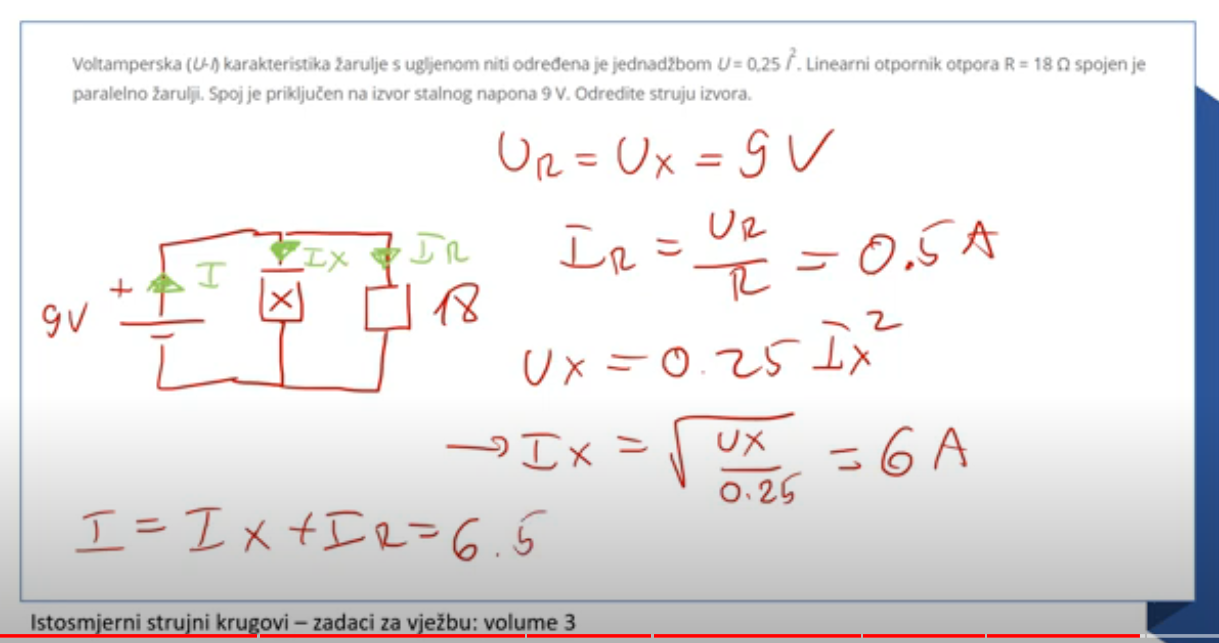 Voltamperska (U-I) karakteristika žarulje s ugljenom niti određena je jednadžbom U = 0,25 I². Linearni otpornik otpora R = 18 Ω spojen je
paralelno žarulji. Spoj je priključen na izvor stalnog napona 9 V. Odredite struju izvora.
U_R = U_X = 9 V
I_R = U_R / R = 0.5 A
+ I
I_X
I_R
9V
X
18
U_X = 0.25 I_X²
→ I_X = √(U_X / 0.25) = 6 A
I = I_X + I_R = 6.5
Istosmjerni strujni krugovi – zadaci za vježbu: volume 3